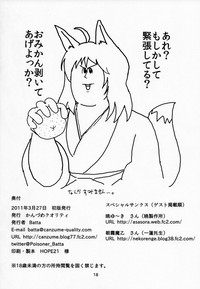 あれ？
もしかして
緊張してる？
おみかん剥いて
あげよっか？
奥付
2011年3月27日　初版発行
発行　かんづめクオリティ
発行者　Batta
E-mail batta@canzume-quality.com
URL http://canzume.blog77.fc2.com/
twitter @Poisoner_Batta
印刷・製本　HOPE21　様
※18歳未満の方の所持閲覧を固く禁じます。
スペシャルサンクス（ゲスト掲載順）
URL http://asasora.web.fc2.com/
朝霧魔乙　さん（一蓮托生）
URL http://nekorenge.blog38.fc2.com/
18